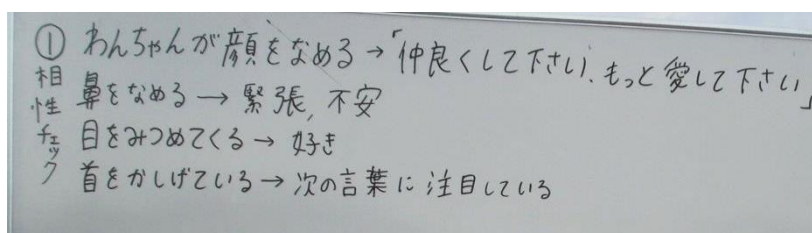 ① わんちゃんが顔をなめる→「仲良くして下さい、もっと愛して下さい」
相性チェック
鼻をなめる→緊張,不安
目をみつめてくる→好き
首をかしげている→次の言葉に注目している